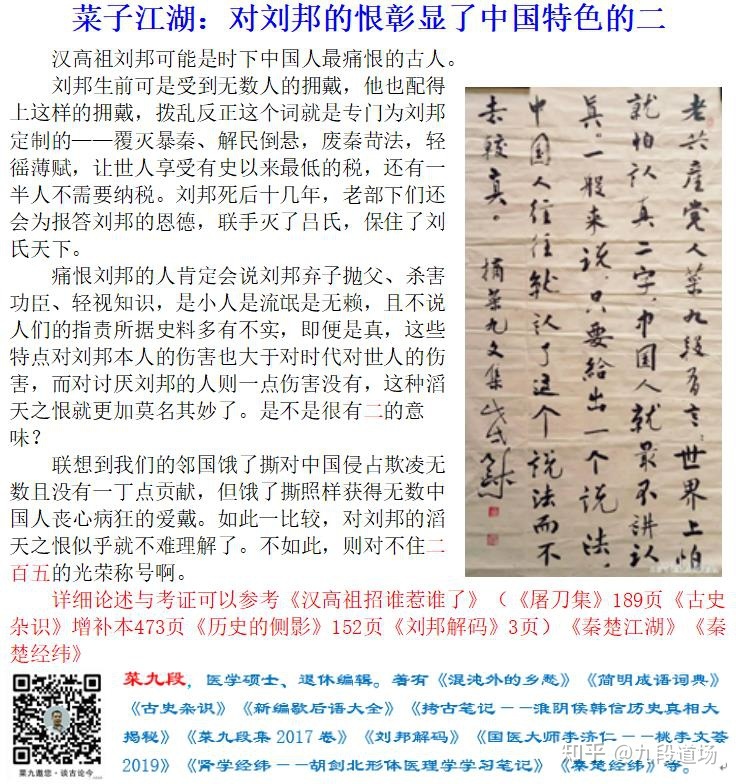 菜子江湖：对刘邦的恨彰显了中国特色的二
汉高祖刘邦可能是时下中国人最痛恨的古人。
刘邦生前可是受到无数人的拥戴，他也配得
上这样的拥戴，拨乱反正这个词就是专门为刘邦
定制的——覆灭暴秦、解民倒悬，废秦苛法，轻
徭薄赋，让世人享受有史以来最低的税，还有一
半人不需要纳税。刘邦死后十几年，老部下们还
会为报答刘邦的恩德，联手灭了吕氏，保住了刘
氏天下。
痛恨刘邦的人肯定会说刘邦弃子抛父、杀害
功臣、轻视知识，是小人是流氓是无赖，且不说
人们的指责所据史料多有不实，即便是真，这些
特点对刘邦本人的伤害也大于对时代对世人的伤
害，而对讨厌刘邦的人则一点伤害没有，这种滔
天之恨就更加莫名其妙了。是不是很有二的意
味？
联想到我们的邻国饿了撕对中国侵占欺凌无
数且没有一丁点贡献，但饿了撕照样获得无数中
国人丧心病狂的爱戴。如此一比较，对刘邦的滔
天之恨似乎就不难理解了。不如此，则对不住二
百五的光荣称号啊。
老共产党人菜九段有言：世界上怕
就怕认真二字，中国人就最不讲认
真。一般来说，只要给出一个说法，
中国人往往就认了这个说法而不
去较真。 摘菜九文集
详细论述与考证可以参考《汉高祖招谁惹谁了》（《屠刀集》189页《古史
杂识》增补本473页《历史的侧影》152页《刘邦解码》3页）《秦楚江湖》《秦
楚经纬》
菜九段，医学硕士、退休编辑。著有《混沌外的乡愁》《简明成语词典》
《古史杂识》《新编歇后语大全》《挎古笔记——淮阴侯韩信历史真相大
揭秘》《菜九段集2017卷》《刘邦解码》《国医大师李济仁——桃李文荟
2019》《肾学经纬——胡剑北形体医理学学习笔记》《秦楚经纬》等。
菜九邀您·谈古论今
知乎 @九段道场